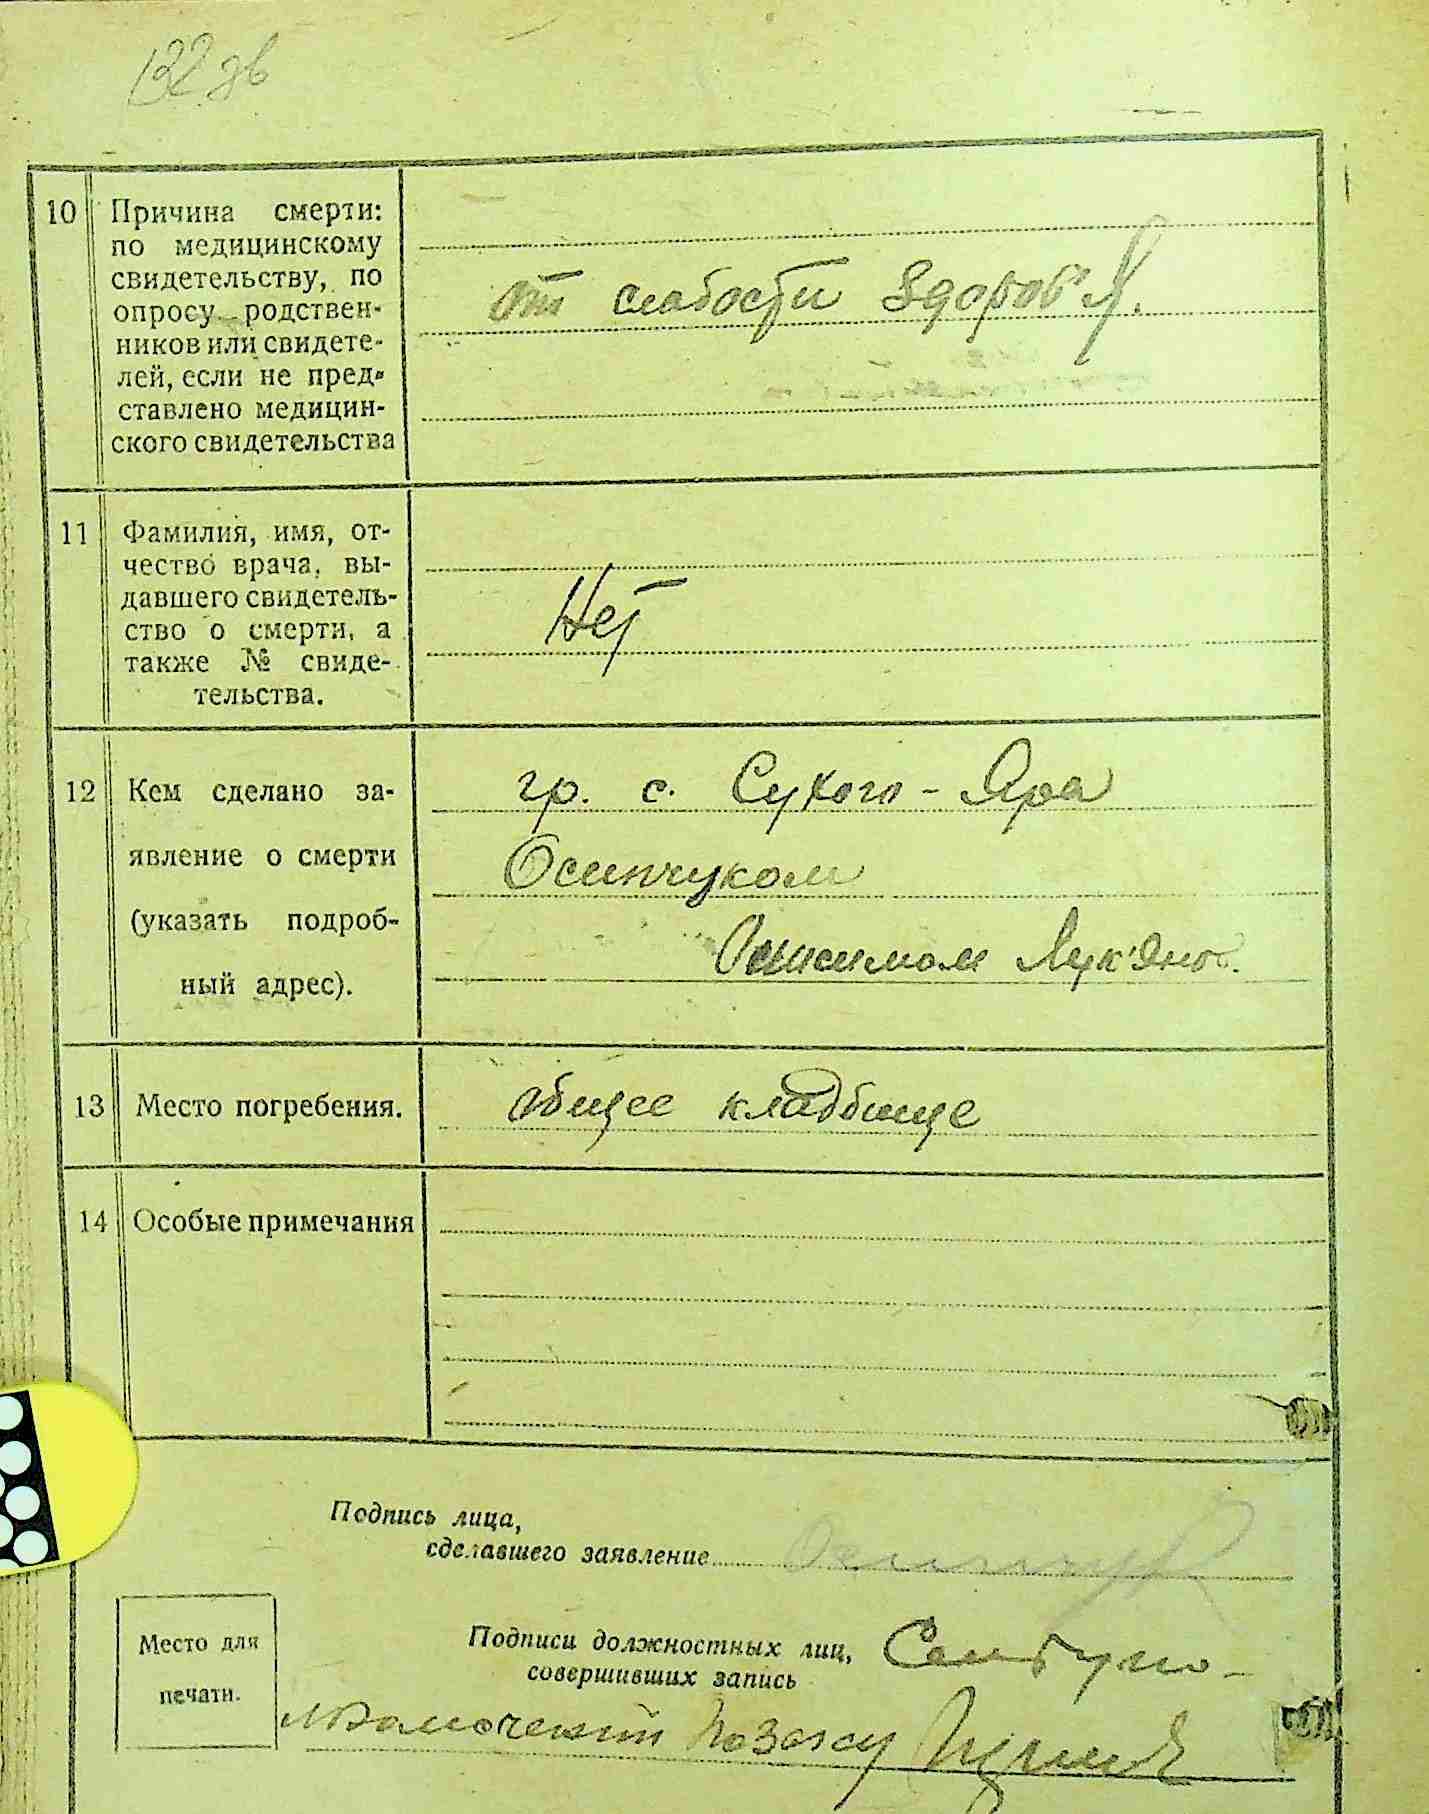 132 зв
10 Причина смерти:
по медицинскому
свидетельству, по
опросу родствен-
ников или свидете-
лей, если не пред-
ставлено медицин-
ского свидетельства
от слабости здоров'я.
11 Фамилия, имя, от-
чество врача, вы-
давшего свидетель-
ство о смерти, а
также № свиде-
тельства.
Нет
12 Кем сделано за-
явление о смерти
(указать подроб-
ный адрес).
гр. с. Сухого-Яра
Осипчуком
Онисимом Лук'янов.
13 Место погребения.
общее кладбище
14 Особые примечания
Подпись лица,
сделавшего заявление
Осипчук
Место для
печати.
Подписи должностных лиц,
совершивших запись